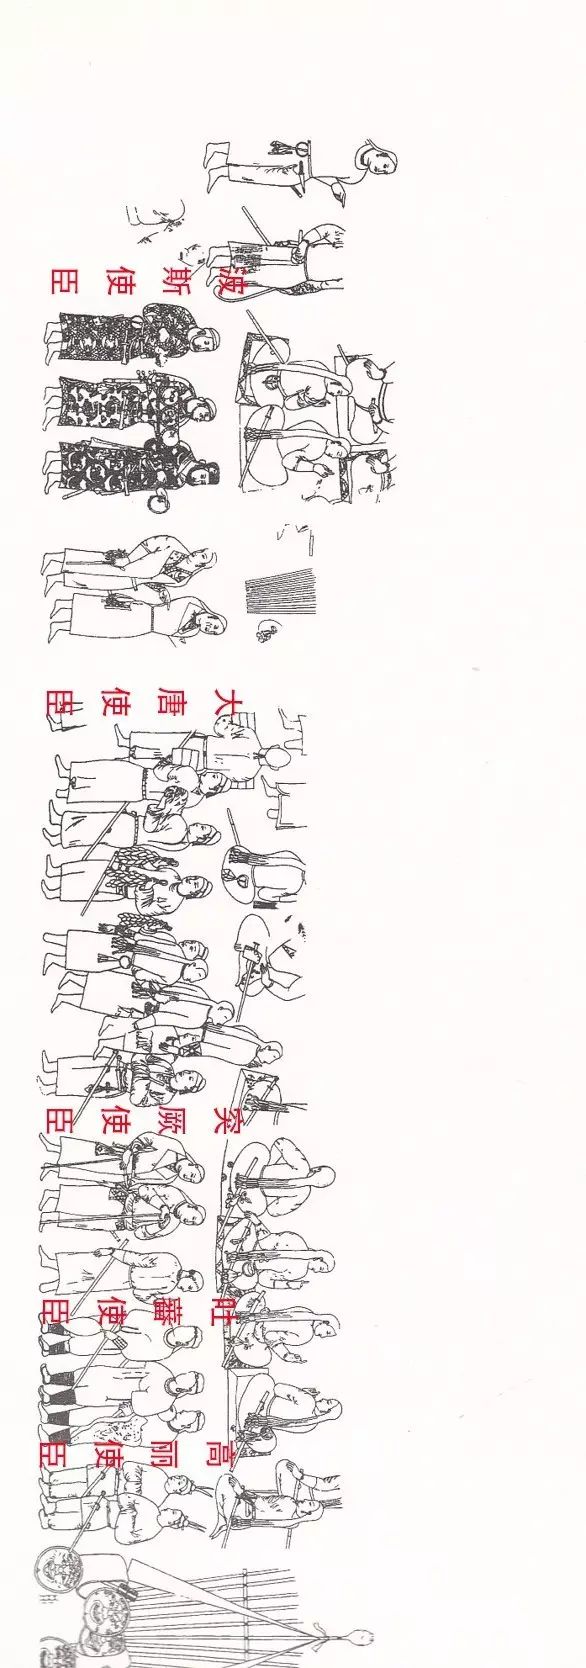 波斯使臣
大唐使臣
突厥使臣
吐蕃使臣
高丽使臣